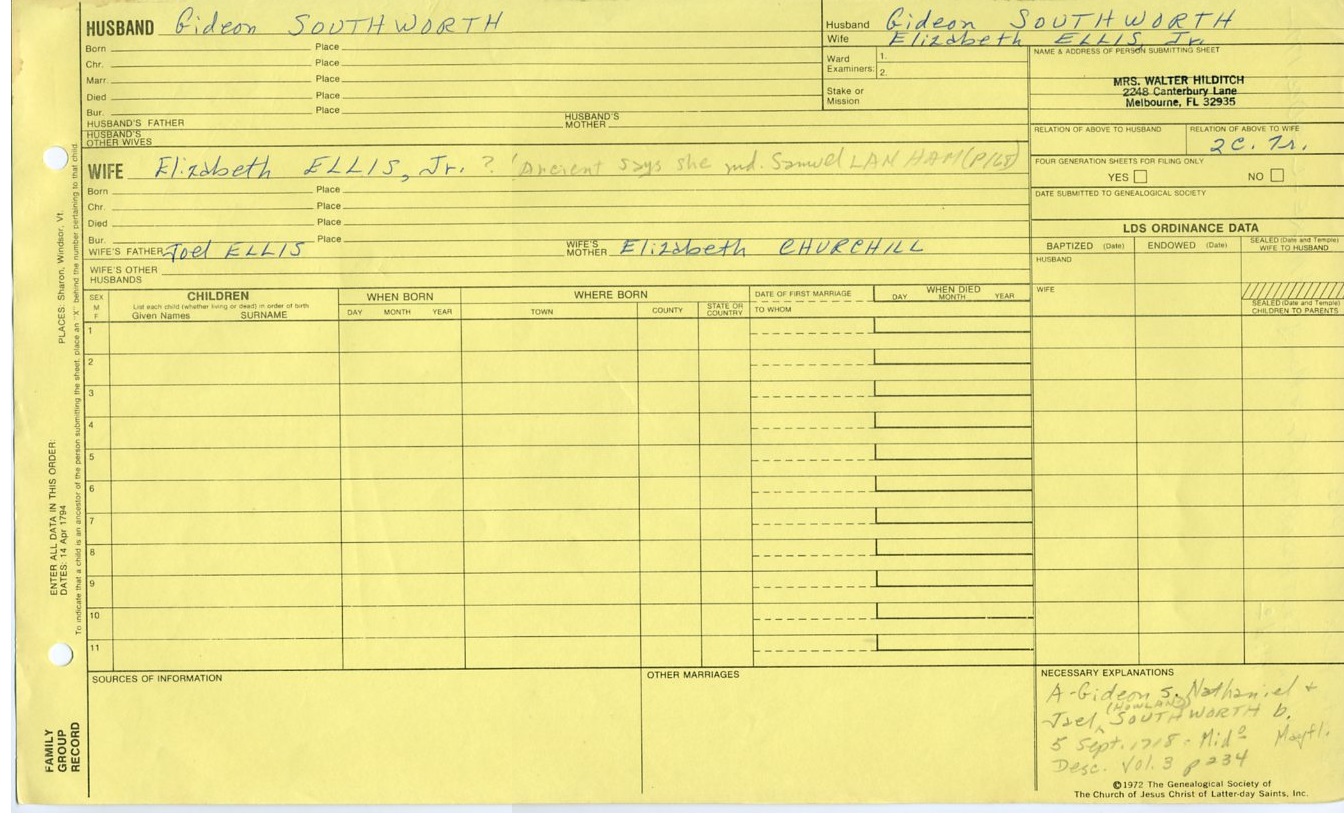 HUSBAND Gideon SOUTHWORTH
Born Place
Chr. Place
Marr. Place
Died Place
Bur. Place
HUSBAND'S FATHER HUSBAND'S MOTHER
HUSBAND'S OTHER WIVES
WIFE Elizabeth ELLIS, Jr. ? Ancient says she md. Samuel LANHAM (P168)
Born Place
Chr. Place
Died Place
Bur. Place
WIFE'S FATHER Joel ELLIS WIFE'S MOTHER Elizabeth CHURCHILL
WIFE'S OTHER HUSBANDS
Husband Gideon SOUTHWORTH
Wife Elizabeth ELLIS, Jr.
Ward Examiners: 1.
2.
Stake or Mission
NAME & ADDRESS OF PERSON SUBMITTING SHEET
MRS. WALTER HILDITCH
2248 Canterbury Lane
Melbourne, FL 32935
RELATION OF ABOVE TO HUSBAND RELATION OF ABOVE TO WIFE
2C. 7r.
FOUR GENERATION SHEETS FOR FILING ONLY
YES NO
DATE SUBMITTED TO GENEALOGICAL SOCIETY
LDS ORDINANCE DATA
BAPTIZED (Date) ENDOWED (Date) SEALED (Date and Temple) WIFE TO HUSBAND
HUSBAND
WIFE
SEALED (Date and Temple) CHILDREN TO PARENTS
SEX M F
CHILDREN
List each child (whether living or dead) in order of birth
Given Names SURNAME
WHEN BORN
DAY MONTH YEAR
WHERE BORN
TOWN COUNTY STATE OR COUNTRY
DATE OF FIRST MARRIAGE
TO WHOM
WHEN DIED
DAY MONTH YEAR
1
2
3
4
5
6
7
8
9
10
11
SOURCES OF INFORMATION
OTHER MARRIAGES
NECESSARY EXPLANATIONS
A-Gideon s. Nathaniel +
Jael (HOWLAND) SOUTHWORTH b.
5 Sept. 1718 - Mido Mayfl.
Desc. Vol. 3 p 234
©1972 The Genealogical Society of
The Church of Jesus Christ of Latter-day Saints, Inc.
PLACES: Sharon, Windsor, Vt.
To indicate that a child is an ancestor of the person submitting the sheet, place an "X" behind the number pertaining to that child.
ENTER ALL DATA IN THIS ORDER:
DATES: 14 Apr 1794
FAMILY
GROUP
RECORD